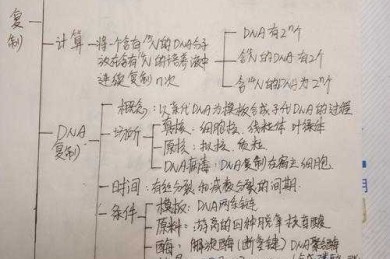 复
制
计算
将一个含有¹⁵N的DNA分子
放在含有¹⁴N的培养液中
连续复制n次
DNA有2ⁿ个
含¹⁵N的DNA有2个
含¹⁴N的DNA为2ⁿ个
DNA
复制
概念：以亲代DNA为模板合成子代DNA的过程
场所
真核：细胞核、线粒体、叶绿体
原核：拟核、质粒
DNA病毒：DNA复制在宿主细胞
时间：有丝分裂和减数分裂的间期
条件
模板：DNA两条链
原料：游离的四种脱氧核苷酸
酶：解旋酶（断氢键）DNA聚合酶